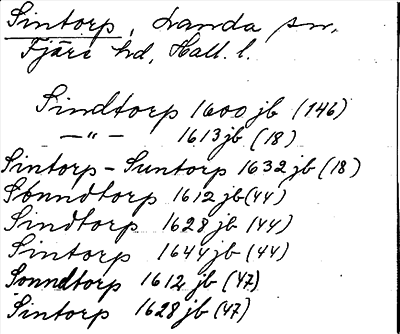 Sintorp, Landa sn,
Fjäre hd, Hall. l.
Sindtorp 1600 jb (146)
— " — 1613 jb (18)
Sintorp - Suntorp 1632 jb (18)
Sonndtorp 1612 jb (44)
Sindtorp 1628 jb (44)
Sintorp 1644 jb (44)
Sonndtorp 1612 jb (47)
Sintorp 1628 jb (47)